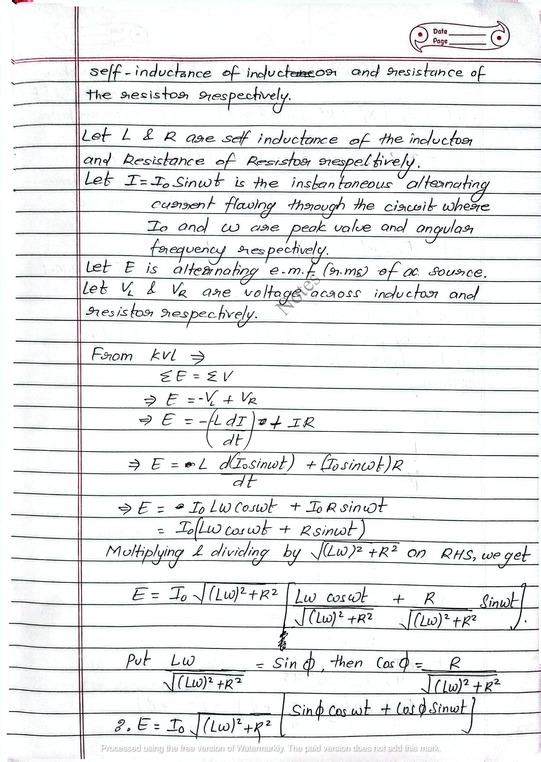 Date
Page
self-inductance of inductor and resistance of
the resistor respectively.
Let L & R are self inductance of the inductor
and Resistance of Resistor respectively.
Let I = I₀ Sinωt is the instantaneous alternating
current flowing through the circuit where
I₀ and ω are peak value and angular
frequency respectively.
Let E is alternating e.m.f (r.ms) of ac source.
Let V_L & V_R are voltage across inductor and
resistor respectively.
Notes
From KVL ⇒
ΣE = ΣV
⇒ E = -V_L + V_R
⇒ E = -(-L dI/dt) + IR
⇒ E = L d(I₀sinωt)/dt + (I₀sinωt)R
⇒ E = I₀Lω cosωt + I₀R sinωt
= I₀(Lω cosωt + R sinωt)
Multiplying & dividing by √(Lω)² + R² on RHS, we get
E = I₀ √(Lω)² + R² [Lω cosωt / √(Lω)² + R² + R / √(Lω)² + R² Sinωt].
Put Lω / √(Lω)² + R² = Sin ϕ, then Cos ϕ = R / √(Lω)² + R²
E = I₀ √(Lω)² + R² [Sinϕ cos ωt + Cosϕ Sinωt]
Processed using the free version of Watermarkly. The paid version does not add this mark.